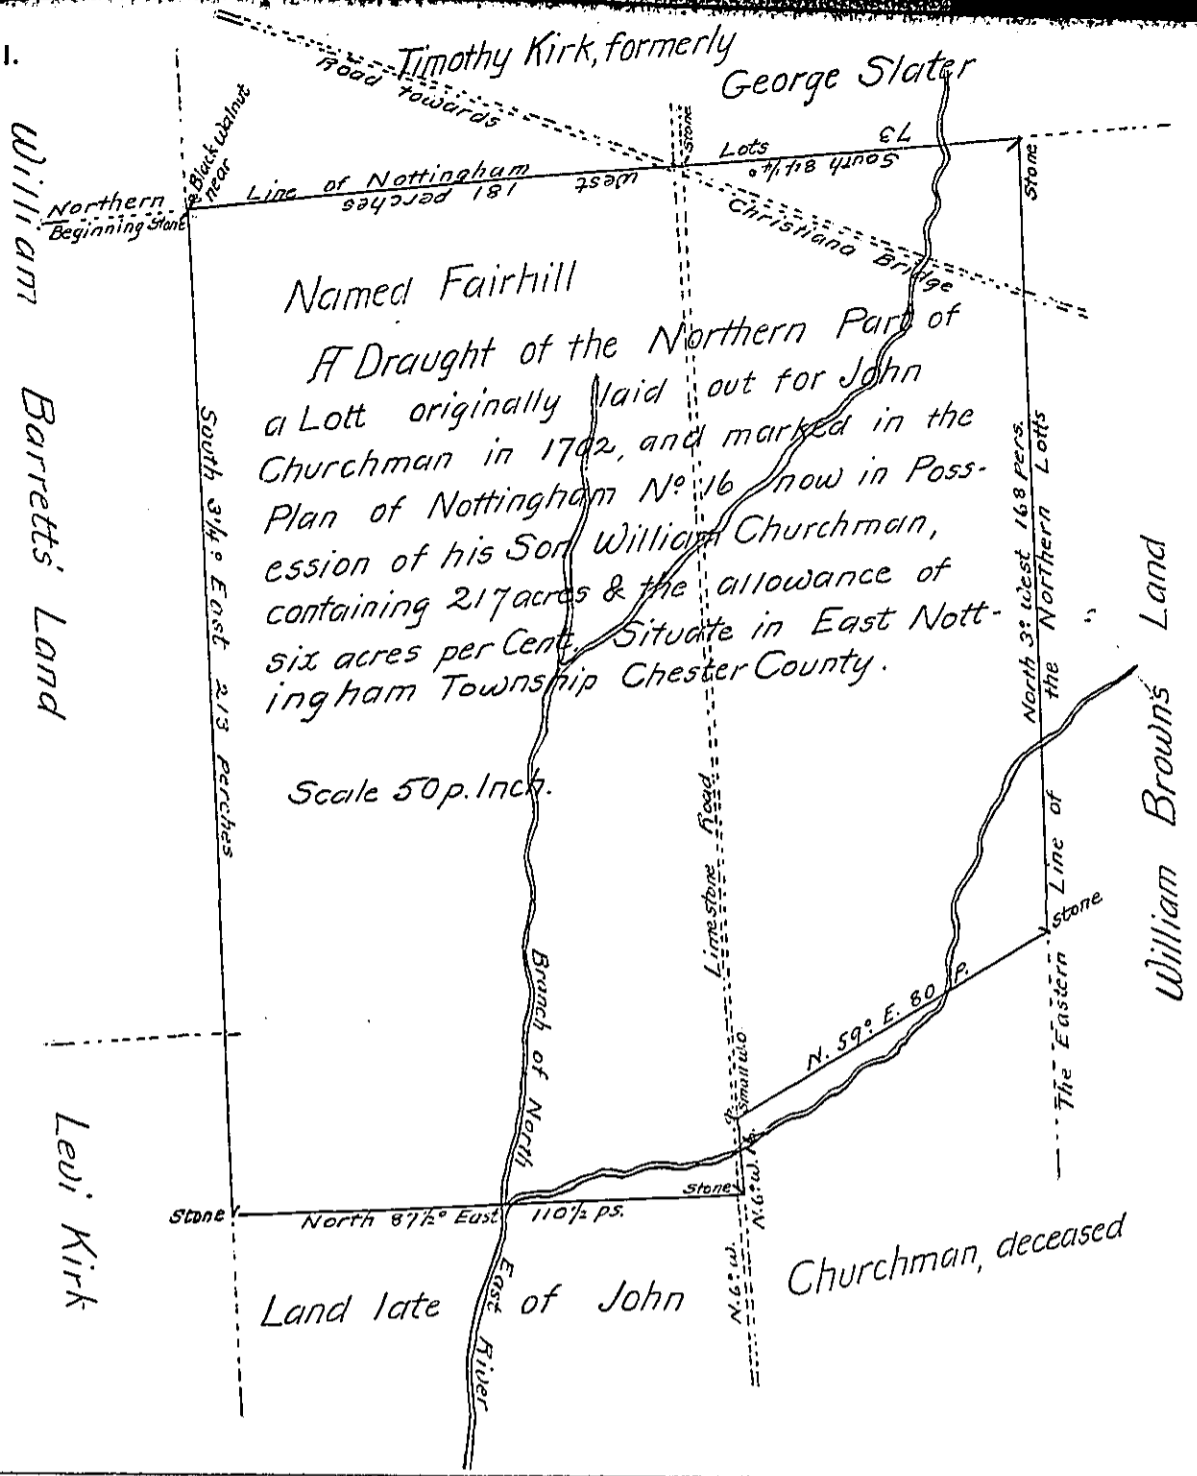 1.
Timothy Kirk, formerly
George Slater
Road towards
Christiana Bridge
Black Walnut
near
Northern
Beginning Stone
Line of Nottingham
Lots
South 84¼°
West
181 perches
73
Stone
Stone
William Barretts' Land
Named Fairhill
A Draught of the Northern Part of
a Lott originally laid out for John
Churchman in 1702, and marked in the
Plan of Nottingham Nº 16 now in Poss-
ession of his Son William Churchman,
containing 217 acres & the allowance of
six acres per Cent. Situate in East Nott-
ingham Township Chester County.
Scale 50 p. Inch.
South 3¼° East 213 perches
North 3° West 168 pers.
The Eastern Line of the Northern Lotts
William Brown's Land
Limestone Road
Branch of North
East River
stone
N. 59° E. 80 P.
Small W.O.
N. 6° W.
Stone
Stone
North 87½° East 110½ ps.
N. 6° W.
Levi Kirk
Land late of John
Churchman, deceased